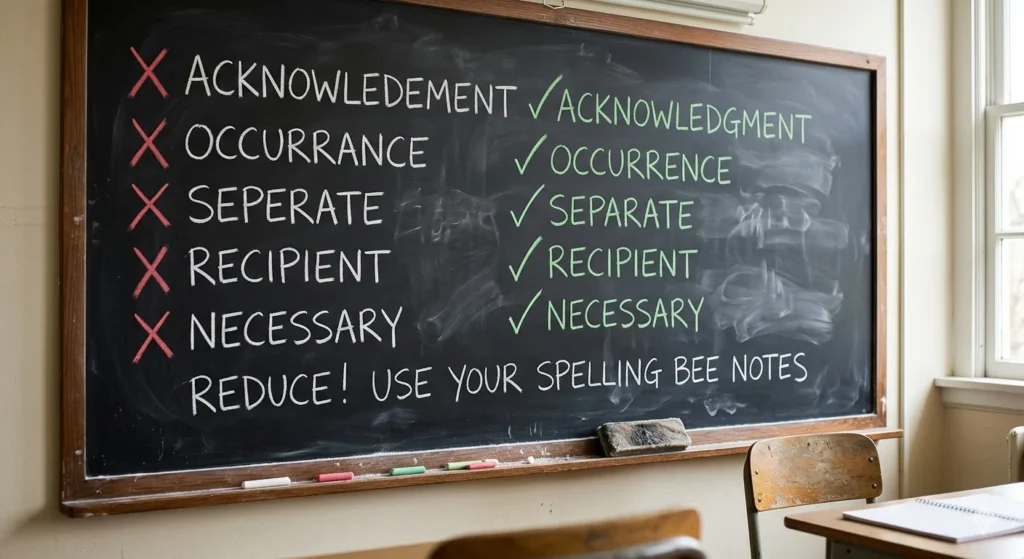 ACKNOWLEDEMENT ACKNOWLEDGMENT
OCCURRANCE OCCURRENCE
SEPERATE SEPARATE
RECIPIENT RECIPIENT
NECESSARY NECESSARY
REDUCE! USE YOUR SPELLING BEE NOTES